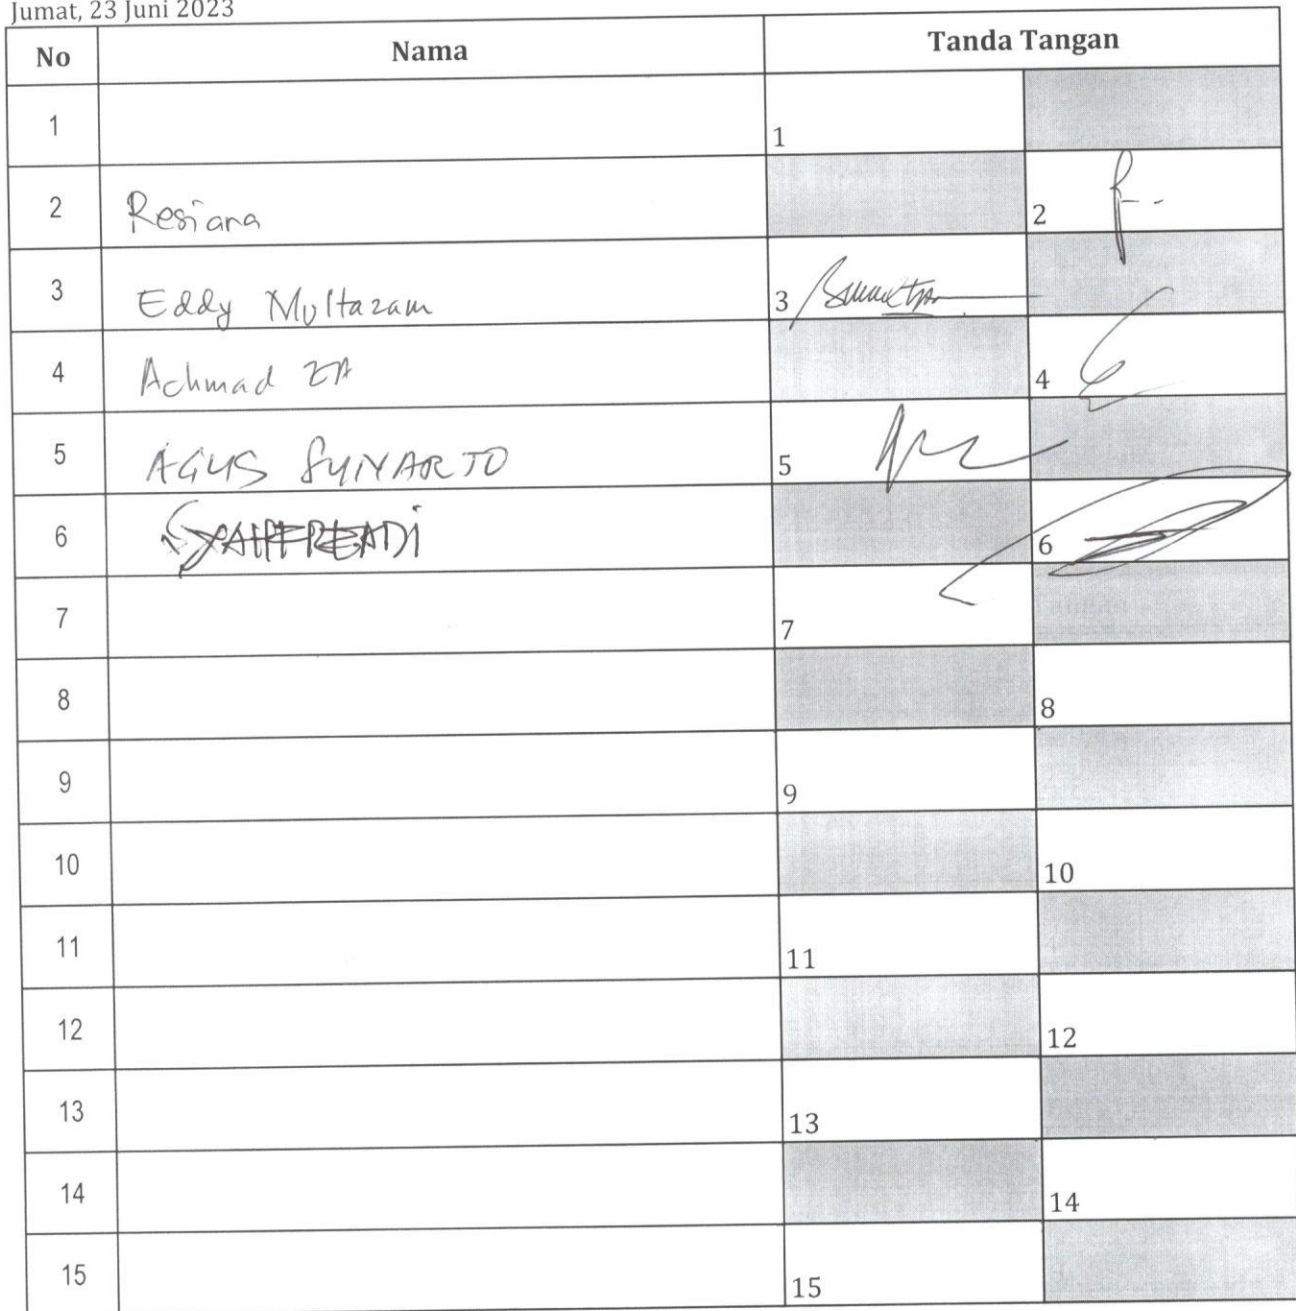 Jumat, 23 Juni 2023
No Nama Tanda Tangan
1 1
2 Resiana 2
3 Eddy Multazam 3
4 Achmad ZA 4
5 AGUS SUNARTO 5
6 6
7 7
8 8
9 9
10 10
11 11
12 12
13 13
14 14
15 15